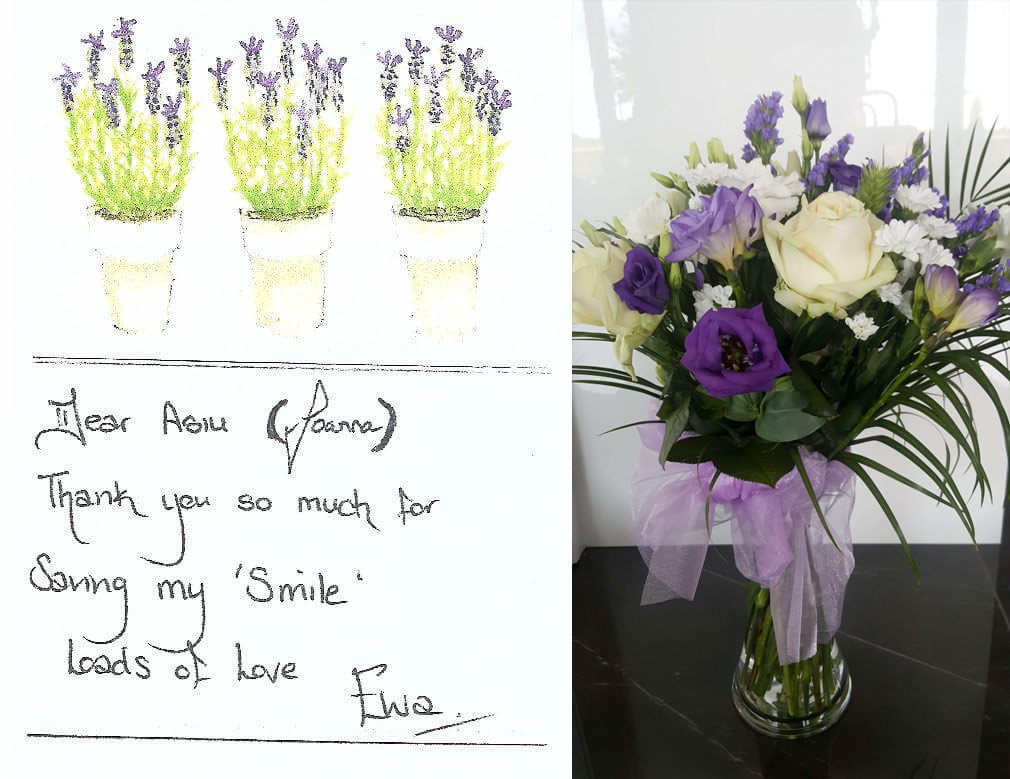 Dear Asiu (Joanna)
Thank you so much for
Saving my 'Smile'
Loads of Love
Ewa.